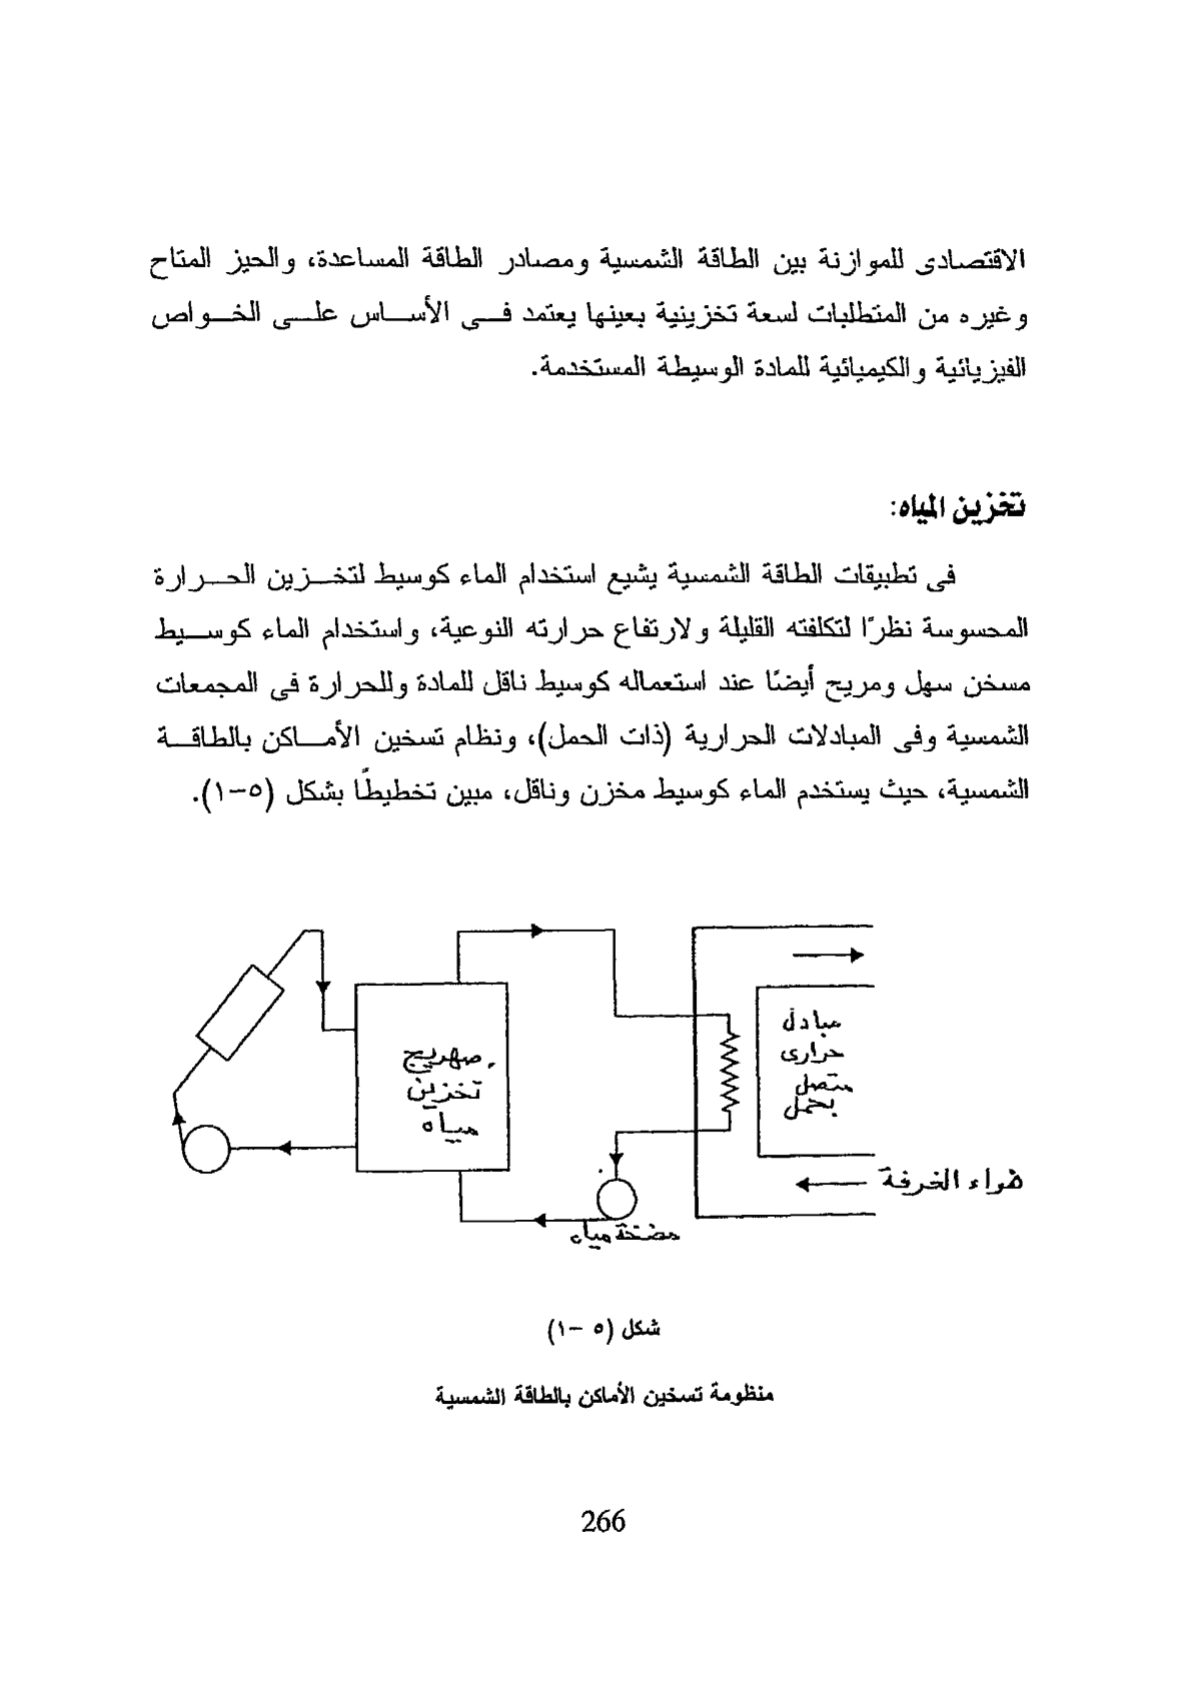 الاقتصادى للموازنة بين الطاقة الشمسية ومصادر الطاقة المساعدة، والحيز المتاح
وغيره من المتطلبات لسعة تخزينية بعينها يعتمد فى الأساس على الخواص
الفيزيائية والكيميائية للمادة الوسيطة المستخدمة.
تخزين المياه:
فى تطبيقات الطاقة الشمسية يشيع استخدام الماء كوسيط لتخزين الحرارة
المحسوسة نظرًا لتكلفته القليلة ولارتفاع حرارته النوعية، واستخدام الماء كوسيط
مسخن سهل ومريح أيضًا عند استعماله كوسيط ناقل للمادة وللحرارة فى المجمعات
الشمسية وفى المبادلات الحرارية (ذات الحمل)، ونظام تسخين الأماكن بالطاقة
الشمسية، حيث يستخدم الماء كوسيط مخزن وناقل، مبين تخطيطًا بشكل (٥–١).
مبادل
حرارى
متصل
بحمل
صهريج
تخزين
مياه
هواء الغرفة
مضخة مياه
شكل (٥ –١)
منظومة تسخين الأماكن بالطاقة الشمسية
266